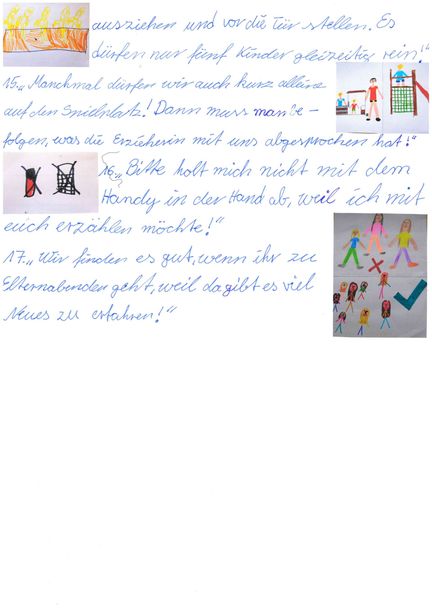 ausziehen und vor die Tür stellen. Es
dürfen nur fünf Kinder gleizeitig rein!"
15. „Manchmal dürfen wir auch kurz alleine
auf den Spielplatz! Dann muss man be-
folgen, was die Erzieherin mit uns abgesprochen hat!"
16. „Bitte holt mich nicht mit dem
Handy in der Hand ab, weil ich mit
euch erzählen möchte!"
17. „Wir finden es gut, wenn ihr zu
Elternabenden geht, weil da gibt es viel
Neues zu erfahren!"